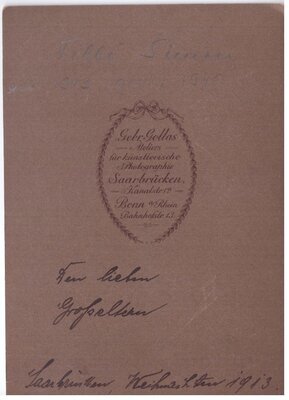 Gebr. Gollas
Ateliers
für künstlerische
Photographie
Saarbrücken,
Kanalstr.
Bonn a/Rhein
Bahnhofstr. 13.
Den lieben
Großeltern
Saarbrücken, Weihnachten 1913.